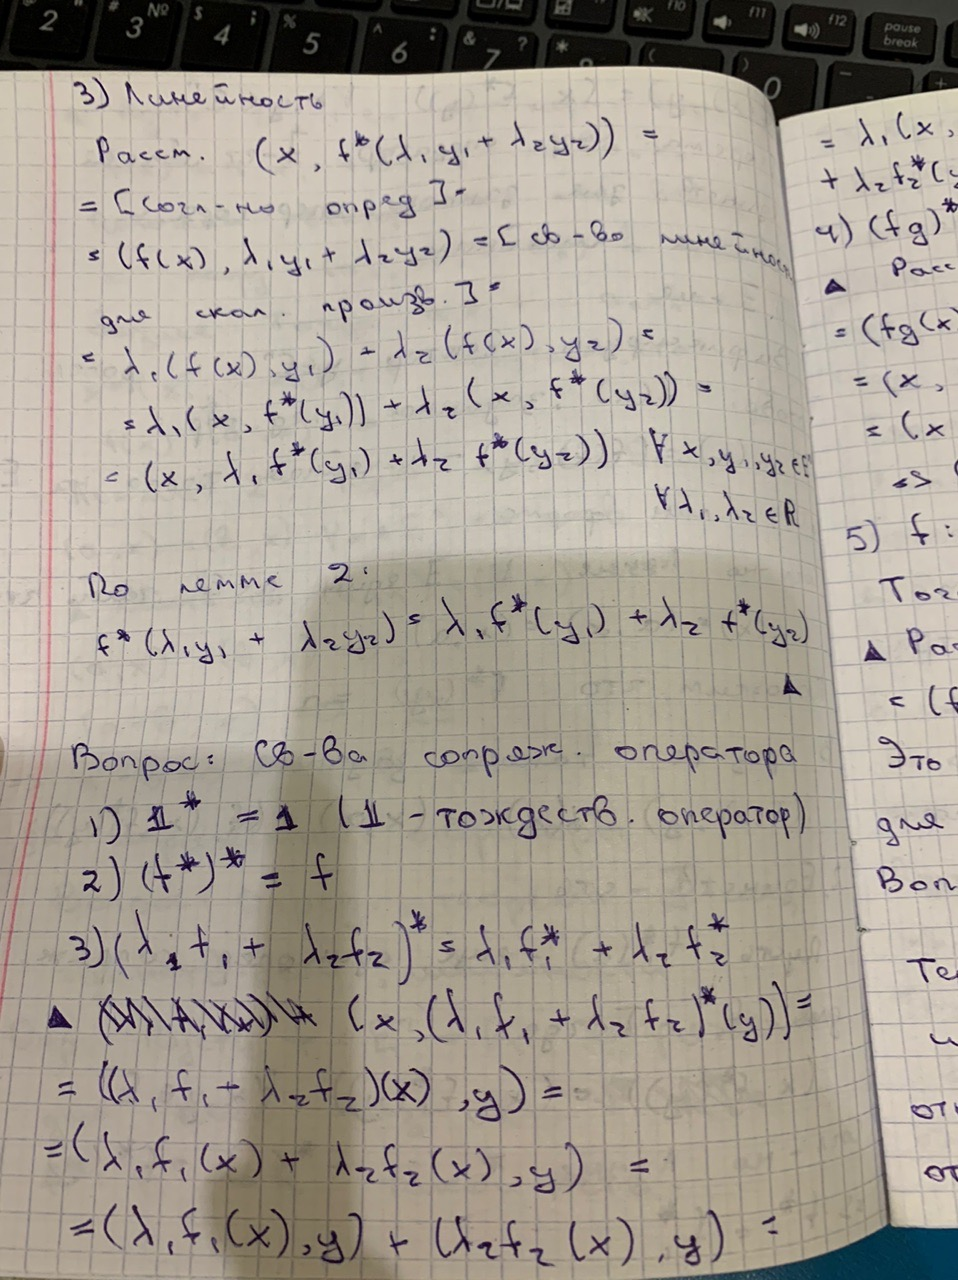 2 # № 3 $ ; 4 % 5 ^ : 6 & ? 7 * ( ) 0 - +
f10 f11 f12 pause break
3) Линейность
Расст. (x, f*(λ₁y₁ + λ₂y₂)) =
= [согл-но опред] =
= (f(x), λ₁y₁ + λ₂y₂) = [св-во линейност
для скал. произв.] =
= λ₁(f(x), y₁) + λ₂(f(x), y₂) =
= λ₁(x, f*(y₁)) + λ₂(x, f*(y₂)) =
= (x, λ₁ f*(y₁) + λ₂ f*(y₂)) ∀ x, y₁, y₂ ∈ E
∀ λ₁, λ₂ ∈ R
По лемме 2:
f*(λ₁y₁ + λ₂y₂) = λ₁f*(y₁) + λ₂ f*(y₂)
▲
Вопрос: Св-ва сопряж. оператора
1) 1* = 1 (1 - тождеств. оператор)
2) (f*)* = f
3) (λ₁f₁ + λ₂f₂)* = λ₁f₁* + λ₂f₂*
▲ (x, (λ₁f₁ + λ₂f₂)*(y)) =
= ((λ₁f₁ + λ₂f₂)(x), y) =
= (λ₁f₁(x) + λ₂f₂(x), y) =
= (λ₁f₁(x), y) + (λ₂f₂(x), y) =
= λ₁(x,
+ λ₂f₂*(y
4) (fg)*
▲ Расс
= (fg(x)
= (x,
= (x
=> (
5) f:
Тог
▲ Ра
= (f
Это
для
Воп
Те
и
отн
от